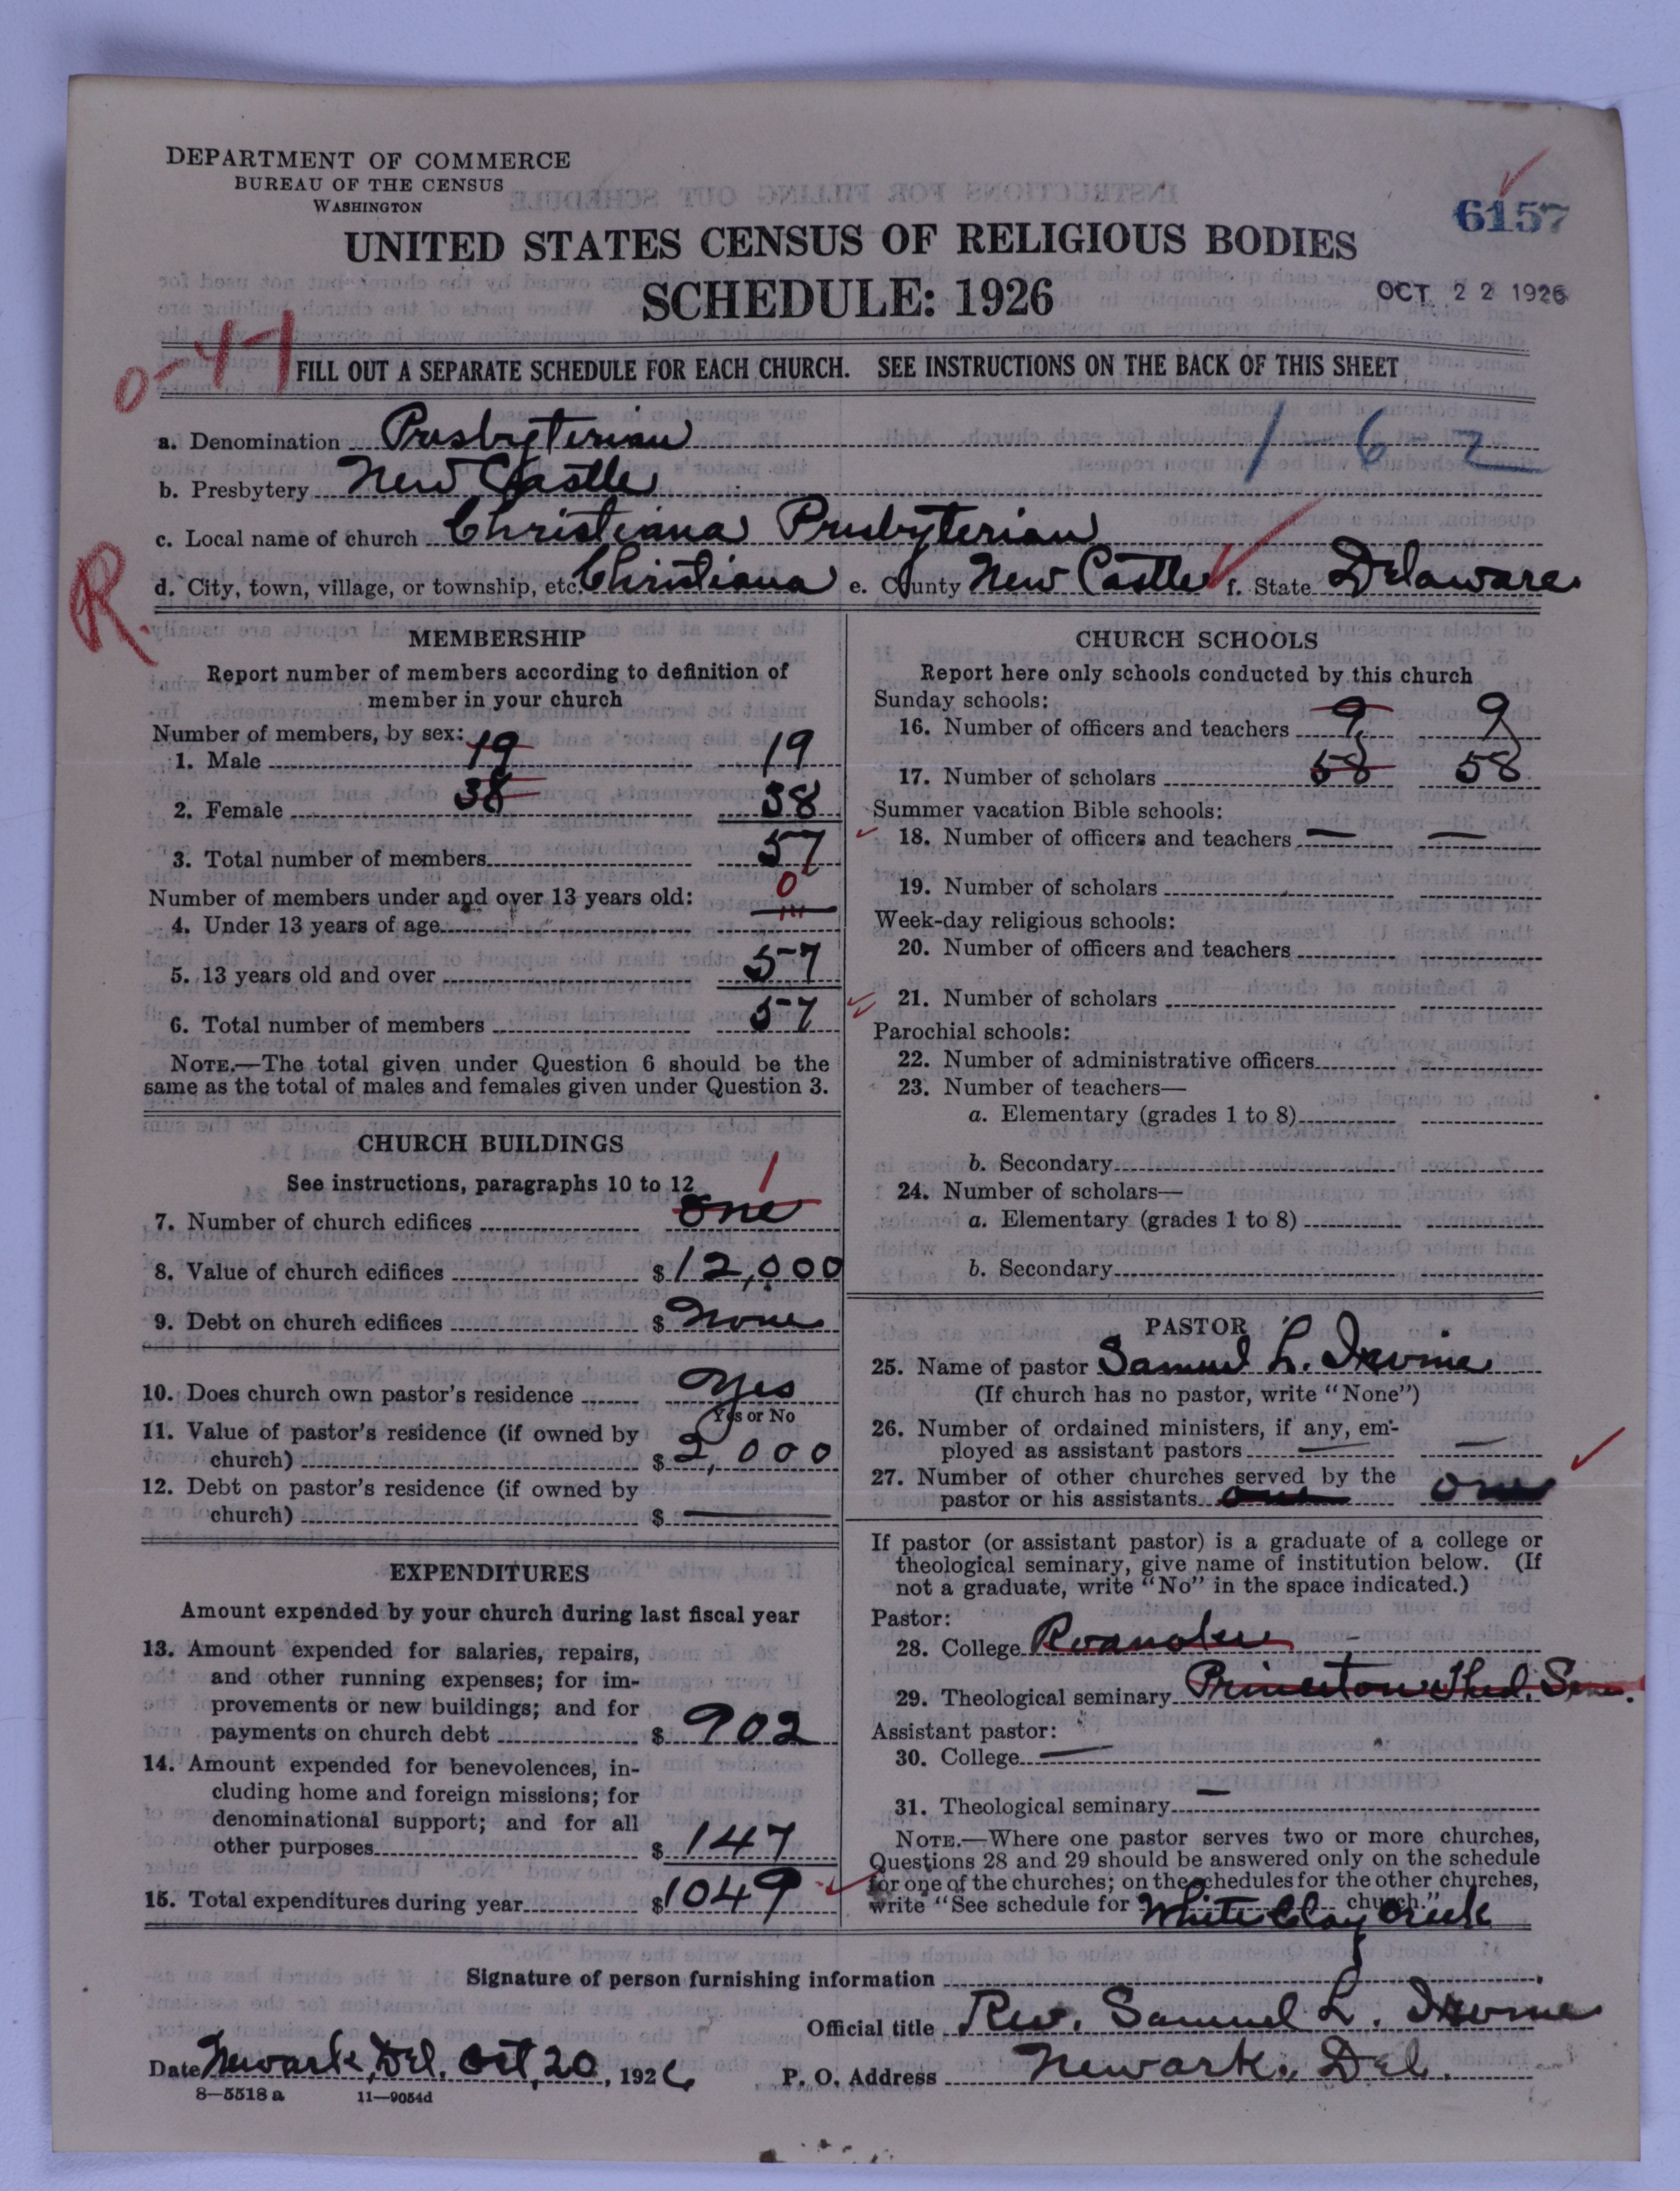 DEPARTMENT OF COMMERCE
BUREAU OF THE CENSUS
WASHINGTON
6157
UNITED STATES CENSUS OF RELIGIOUS BODIES
SCHEDULE: 1926
OCT 22 1926
0-4-1
FILL OUT A SEPARATE SCHEDULE FOR EACH CHURCH. SEE INSTRUCTIONS ON THE BACK OF THIS SHEET
a. Denomination Presbyterian
1-6-2
b. Presbytery New Castle
c. Local name of church Christiana Presbyterian
R.
d. City, town, village, or township, etc. Christiana e. County New Castle f. State Delaware
MEMBERSHIP
Report number of members according to definition of
member in your church
Number of members, by sex:
1. Male 19 19
2. Female 38 38
3. Total number of members 57
Number of members under and over 13 years old: 0
4. Under 13 years of age
5. 13 years old and over 57
6. Total number of members 57
NOTE.—The total given under Question 6 should be the
same as the total of males and females given under Question 3.
CHURCH BUILDINGS
See instructions, paragraphs 10 to 12
1
7. Number of church edifices one
8. Value of church edifices $ 12,000
9. Debt on church edifices $ None
10. Does church own pastor's residence Yes
Yes or No
11. Value of pastor's residence (if owned by
church) $ 2,000
12. Debt on pastor's residence (if owned by
church) $ —
EXPENDITURES
Amount expended by your church during last fiscal year
13. Amount expended for salaries, repairs,
and other running expenses; for im-
provements or new buildings; and for
payments on church debt $ 902
14. Amount expended for benevolences, in-
cluding home and foreign missions; for
denominational support; and for all
other purposes $ 147
15. Total expenditures during year $ 1049
CHURCH SCHOOLS
Report here only schools conducted by this church
Sunday schools:
16. Number of officers and teachers 9 9
17. Number of scholars 58 58
Summer vacation Bible schools:
18. Number of officers and teachers — —
19. Number of scholars
Week-day religious schools:
20. Number of officers and teachers
21. Number of scholars
Parochial schools:
22. Number of administrative officers
23. Number of teachers—
a. Elementary (grades 1 to 8)
b. Secondary
24. Number of scholars—
a. Elementary (grades 1 to 8)
b. Secondary
PASTOR
25. Name of pastor Samuel L. Irvine
(If church has no pastor, write "None")
26. Number of ordained ministers, if any, em-
ployed as assistant pastors — —
27. Number of other churches served by the
pastor or his assistants one one
If pastor (or assistant pastor) is a graduate of a college or
theological seminary, give name of institution below. (If
not a graduate, write "No" in the space indicated.)
Pastor:
28. College Roanoke
29. Theological seminary Princeton Theol. Sem.
Assistant pastor:
30. College —
31. Theological seminary —
NOTE.—Where one pastor serves two or more churches,
Questions 28 and 29 should be answered only on the schedule
for one of the churches; on the schedules for the other churches,
write "See schedule for White Clay Creek church."
Signature of person furnishing information
Official title Rev. Samuel L. Irvine
Date Newark, Del. Oct, 20, 1926
P. O. Address Newark, Del.
8—5518 a 11—9054d